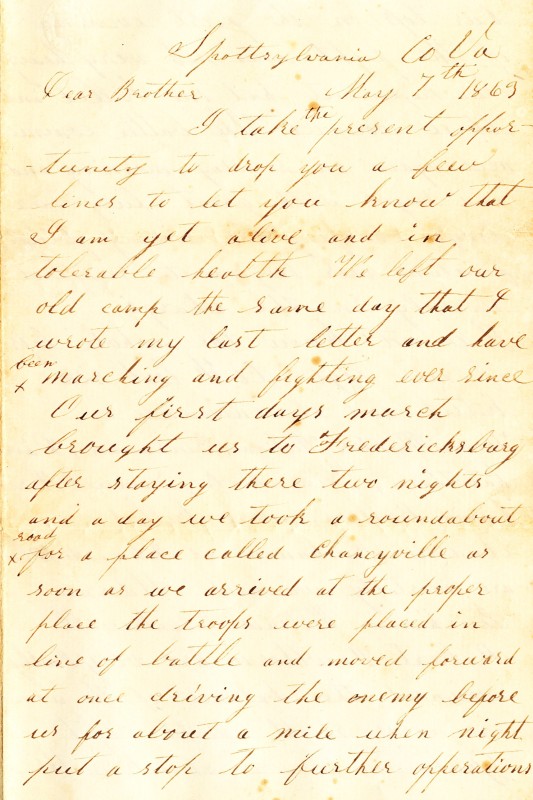 Spottsylvania Co Va
Dear Brother May 7th 1863
I take the present oppor-
-tunity to drop you a few
lines to let you know that
I am yet alive and in
tolerable health We left our
old camp the same day that I
wrote my last letter and have
been
x marching and fighting ever since
Our first days march
brought us to Fredericksburg
after staying there two nights
and a day we took a roundabout
road
x for a place called Chanceyville as
soon as we arrived at the proper
place the troops were placed in
line of battle and moved forward
at once driving the enemy before
us for about a mile when night
put a stop to further opperations